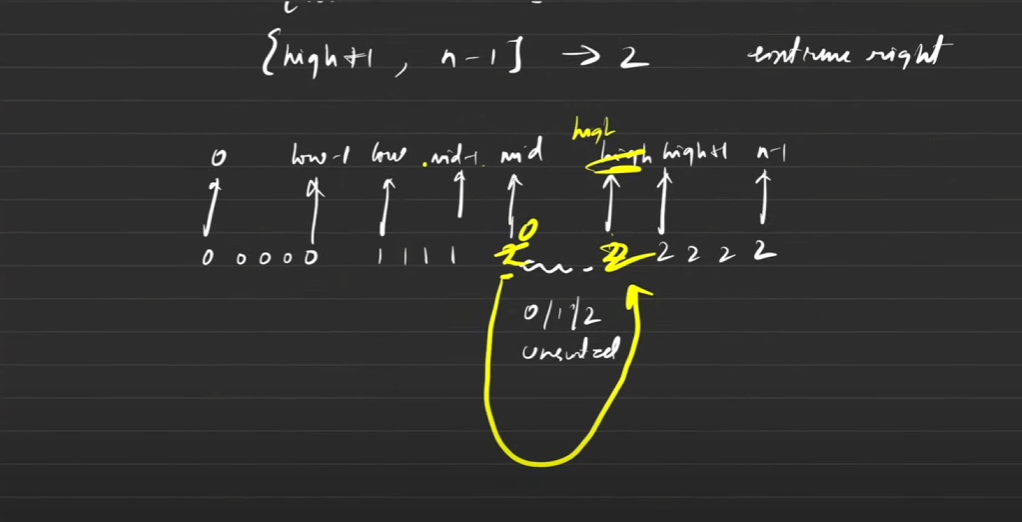 [high+1, n-1] → 2 extreme right
high
0 low-1 low mid-1 mid high high+1 n-1
0
0 0 0 0 0 1 1 1 1 2 2 2 2 2 2
0/1/2
unsorted